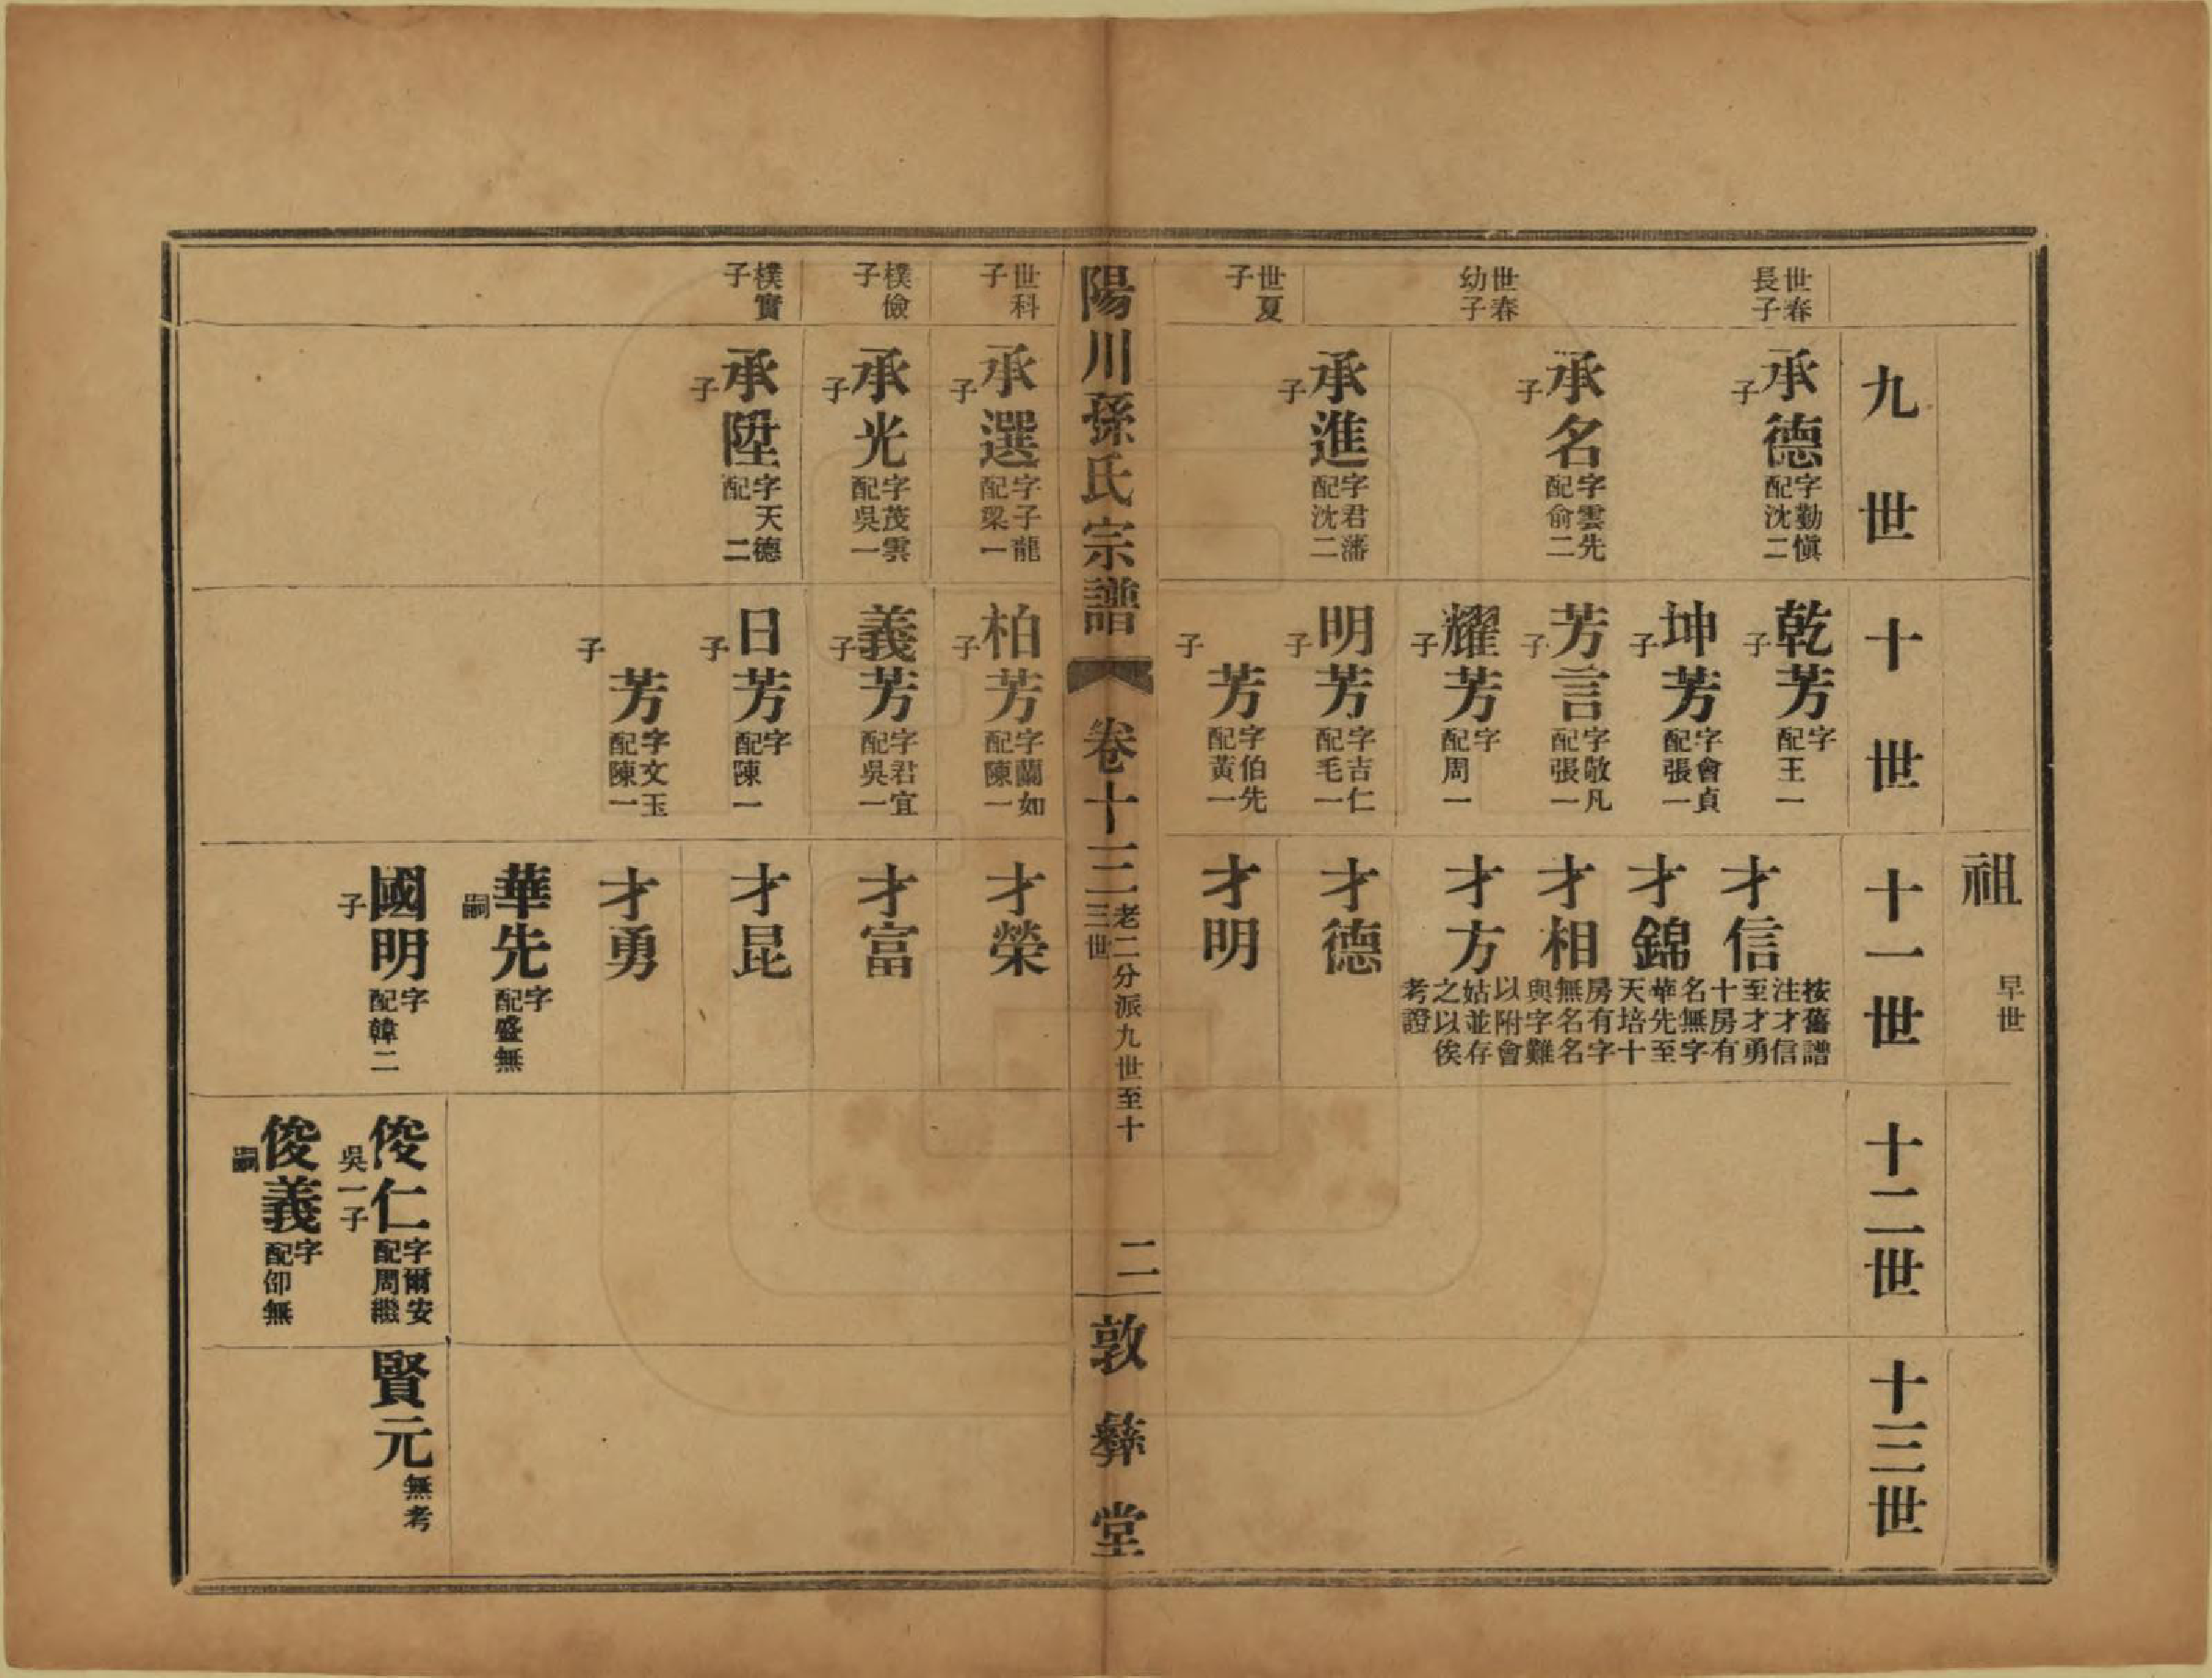 祖 早世
九世
十世
十一世
十二世
十三世
世春長子
承德 字勤慎配沈二子
乾芳 字配王一子
坤芳 字會貞配張一子
才信
才錦
按舊譜注才信至才勇十房有名無字華先至天培十房有字無名名與字難以附會姑並存之以俟考證
世春幼子
承名 字雲先配俞二子
芳言 字敬凡配張一子
耀芳 字配周一子
才相
才方
世夏子
承進 字君藩配沈二子
明芳 字吉仁配毛一子
芳 字伯先配黃一子
才德
才明
陽川孫氏宗譜 卷十三 老二分派九世至十三世 二 敦彝堂
世科子
承選 字子龍配梁一子
柏芳 字蘭如配陳一子
才榮
樸儉子
承光 字茂雲配吳一子
義芳 字君宜配吳一子
才富
樸實子
承陞 字天德配 二子
日芳 字配陳一子
芳 字文玉配陳一子
才昆
才勇
華先 字配盛無嗣
國明 字配韓二子
俊仁 字爾安配周繼吳一子
俊義 字配邵無嗣
賢元 無考